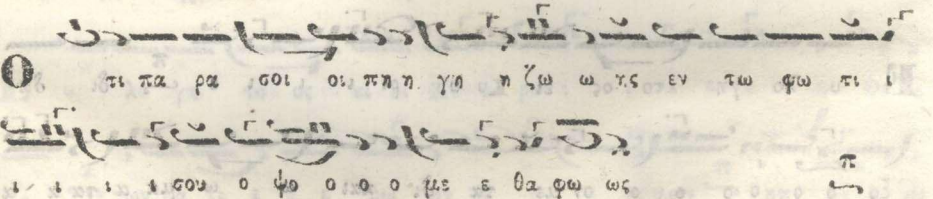 Ο τι πα ρα σοι οι πη η γη η ζω ω ης εν τω φω τι ι
ι ι ι ι σου ο ψο ο ο ο με ε θα φω ως
π